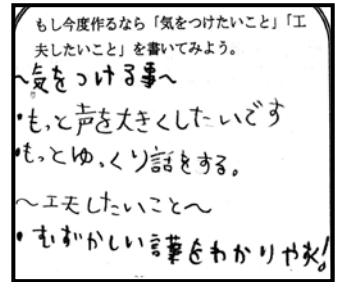 もし今度作るなら「気をつけたいこと」「工
夫したいこと」を書いてみよう。
~気をつける事~
・もっと声を大きくしたいです
・もっとゆっくり話をする。
~工夫したいこと~
・むずかしい言葉をわかりやすく!